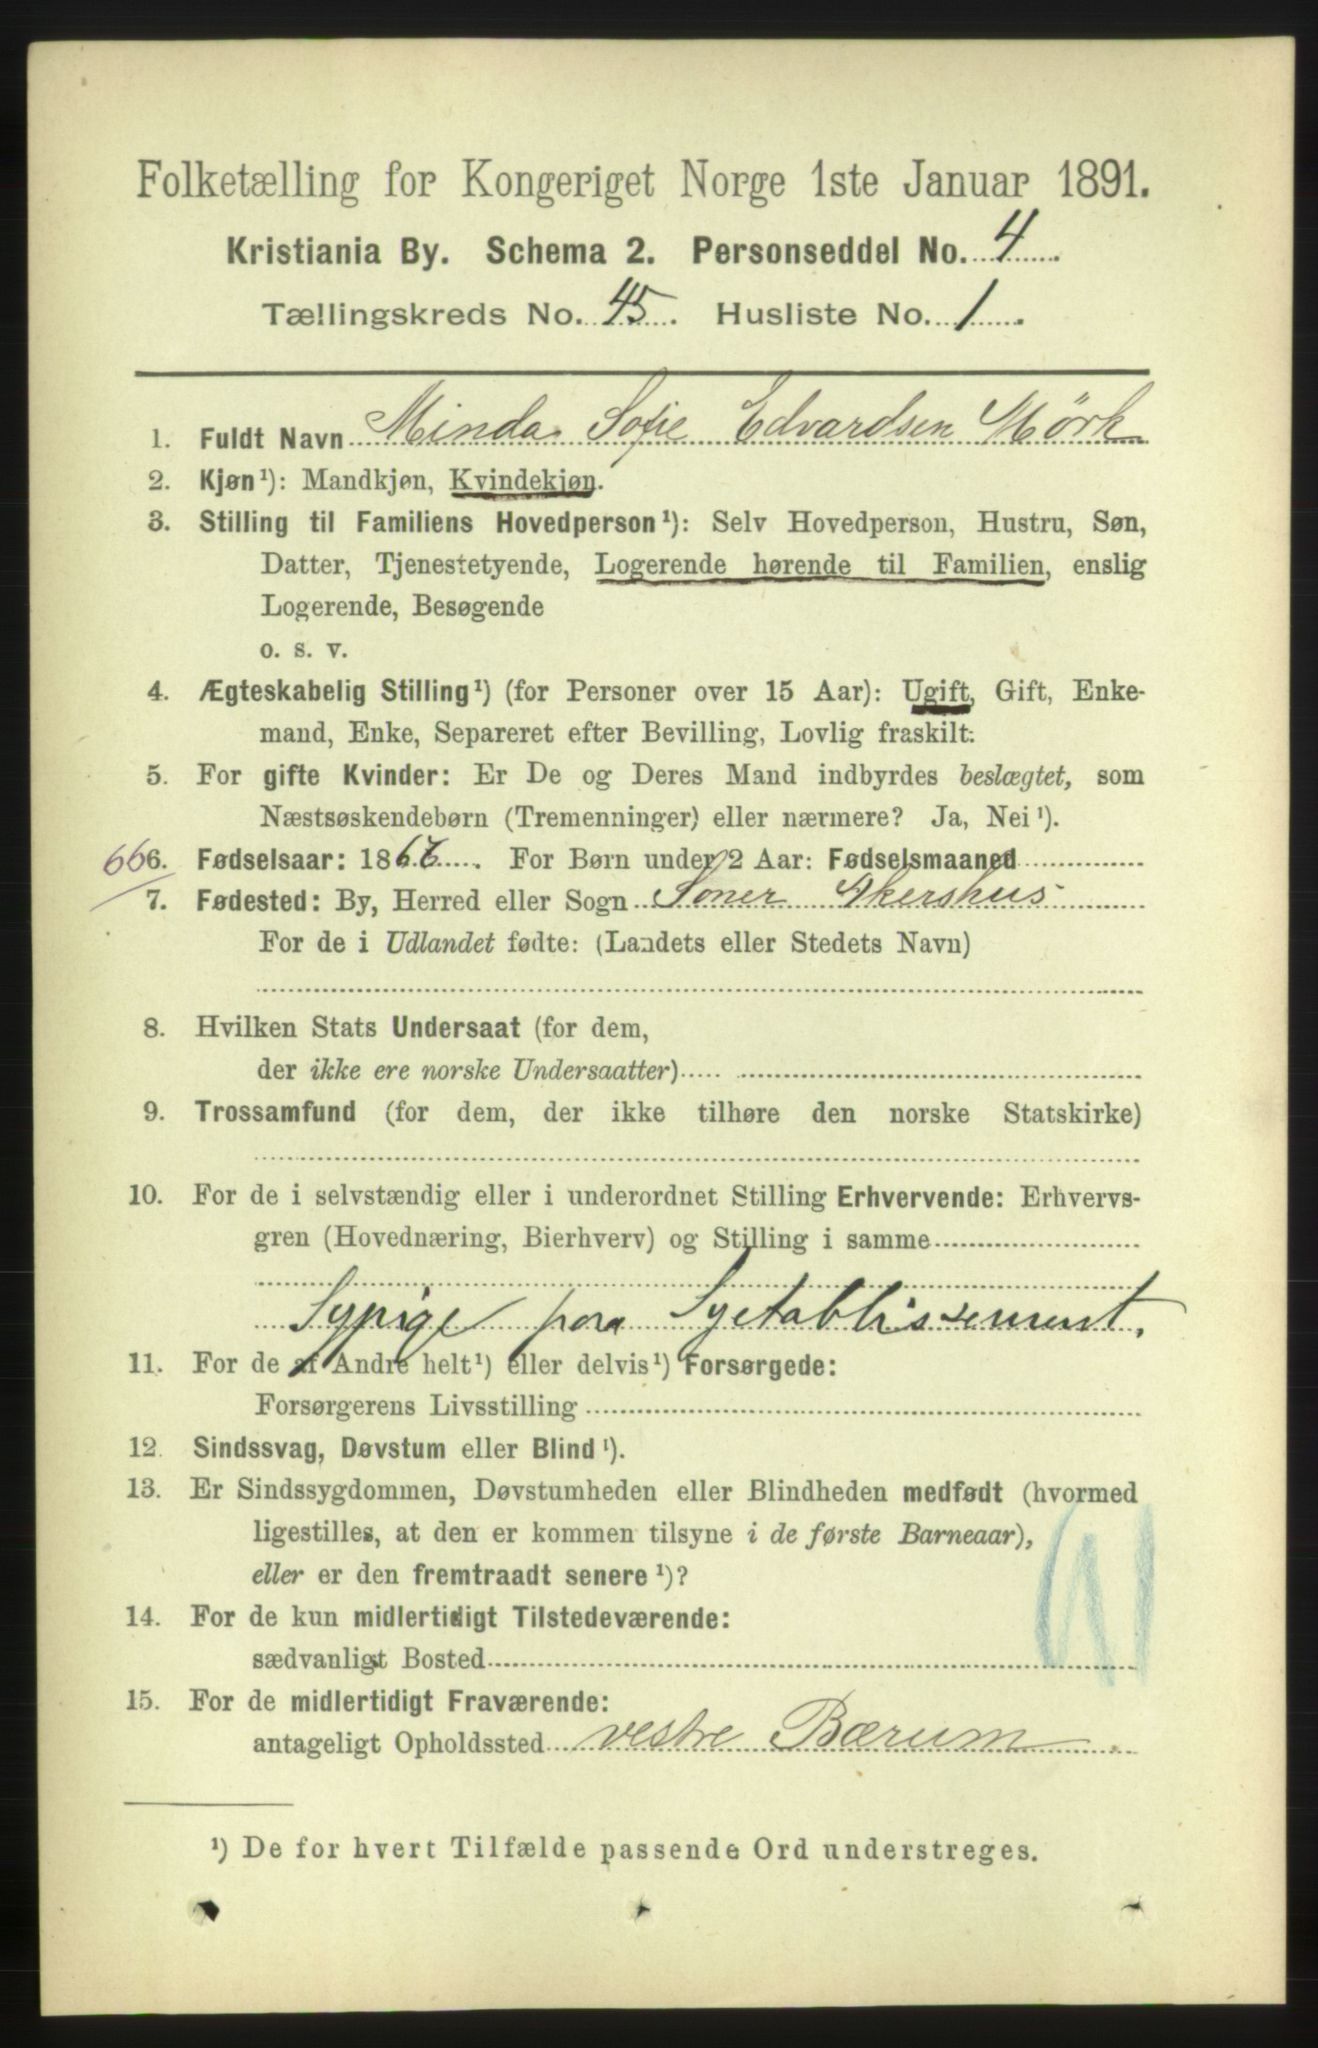 Folketælling for Kongeriget Norge 1ste Januar 1891.
Kristiania By. Schema 2. Personseddel No. 4
Tællingskreds No. 45. Husliste No. 1
1. Fuldt Navn Minda Sofie Edvardsen Mörk
2. Kjøn¹): Mandkjøn, Kvindekjøn.
3. Stilling til Familiens Hovedperson¹): Selv Hovedperson, Hustru, Søn,
Datter, Tjenestetyende, Logerende hørende til Familien, enslig
Logerende, Besøgende
o. s. v.
4. Ægteskabelig Stilling¹) (for Personer over 15 Aar): Ugift, Gift, Enke-
mand, Enke, Separeret efter Bevilling, Lovlig fraskilt.
5. For gifte Kvinder: Er De og Deres Mand indbyrdes beslægtet, som
Næstsøskendebørn (Tremenninger) eller nærmere? Ja, Nei¹).
66
6. Fødselsaar: 186. For Børn under 2 Aar: Fødselsmaaned
7. Fødested: By, Herred eller Sogn Soner Akershus
For de i Udlandet fødte: (Landets eller Stedets Navn)
8. Hvilken Stats Undersaat (for dem,
der ikke ere norske Undersaatter)
9. Trossamfund (for dem, der ikke tilhøre den norske Statskirke)
10. For de i selvstændig eller i underordnet Stilling Erhvervende: Erhvervs-
gren (Hovednæring, Bierhverv) og Stilling i samme
Sypige paa Syetablissement.
11. For de af Andre helt¹) eller delvis¹) Forsørgede:
Forsørgerens Livsstilling
12. Sindssvag, Døvstum eller Blind¹).
13. Er Sindssygdommen, Døvstumheden eller Blindheden medfødt (hvormed
ligestilles, at den er kommen tilsyne i de første Barneaar),
eller er den fremtraadt senere¹)?
14. For de kun midlertidigt Tilstedeværende:
sædvanligt Bosted
15. For de midlertidigt Fraværende:
antageligt Opholdssted vestre Bærum
¹) De for hvert Tilfælde passende Ord understreges.